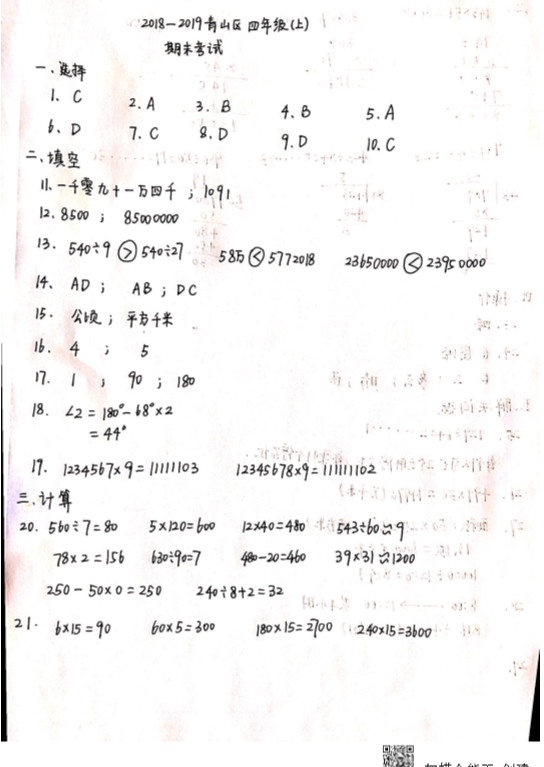 2018-2019青山区四年级(上)
期末考试
一、选择
1. C 2. A 3. B 4. B 5. A
6. D 7. C 8. D 9. D 10. C
二、填空
11. 一千零九十一万四千 ; 1091
12. 8500 ; 85000000
13. 540÷9 > 540÷27 58万 < 5772018 23650000 < 23950000
14. AD ; AB ; DC
15. 公顷 ; 平方千米
16. 4 ; 5
17. 1 ; 90 ; 180
18. ∠2 = 180°-68°×2
= 44°
19. 1234567×9=11111103 12345678×9=111111102
三.计算
20. 560÷7=80 5×120=600 12×40=480 543÷60≈9
78×2=156 630÷90=7 480-20=460 39×31≈1200
250-50×0=250 240÷8+2=32
21. 6×15=90 60×5=300 180×15=2700 240×15=3600